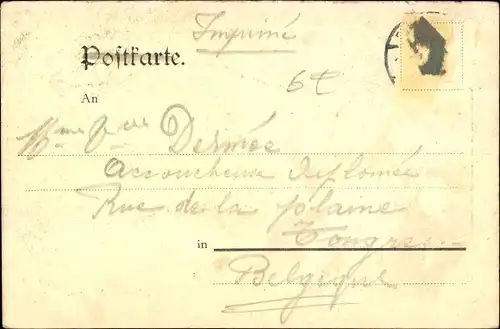 Imprimé
Postkarte.
6
An
Mme Dermée
accoucheuse diplomée
Rue de la plaine
in Tongres
Belgique